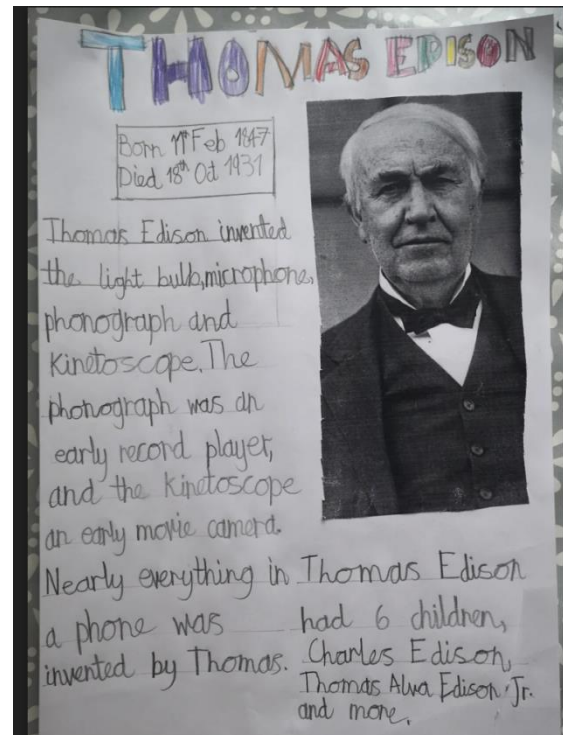 THOMAS EDISON
Born 11th Feb 1847
Died 18th Oct 1931
Thomas Edison invented
the light bulb, microphone,
phonograph and
Kinetoscope. The
phonograph was an
early record player,
and the kinetoscope
an early movie camera.
Nearly everything in
a phone was
invented by Thomas.
Thomas Edison
had 6 children,
Charles Edison,
Thomas Alva Edison Jr.
and more.